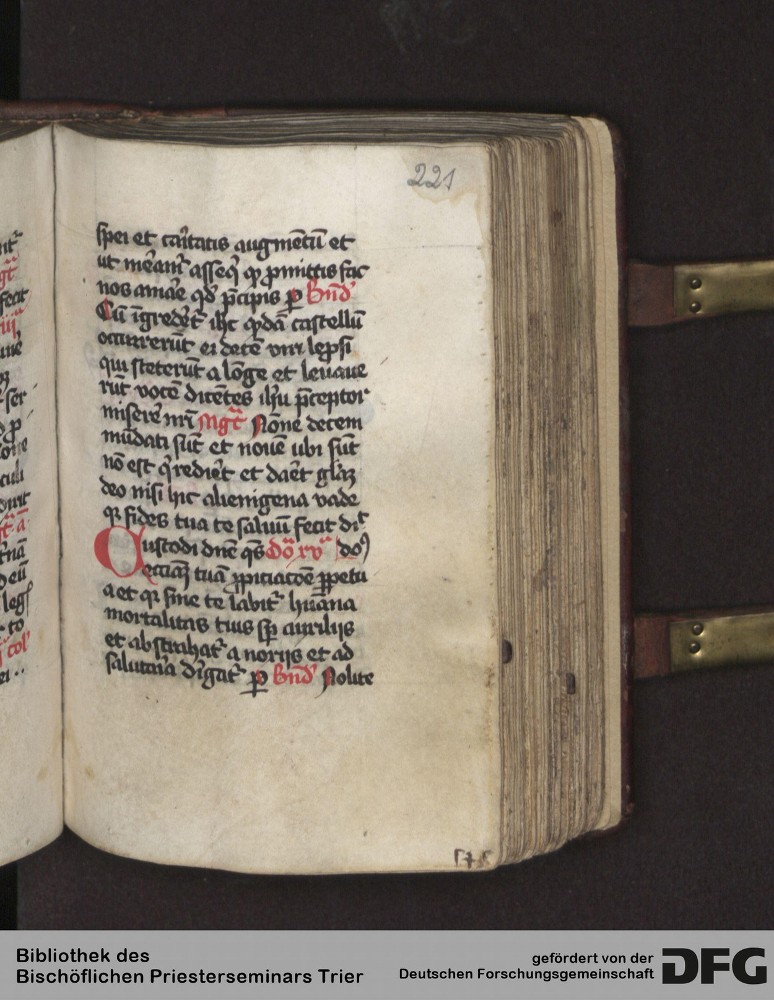 221
spei et caritatis augmētū et
ut meam̄ asseq̄ qp̄ promittis fac
nos amar̄e qd̄ p̄cipis p̄ Bn̄d
Cū īgreder̄et ih̄c qdā castellū
occurrerūt ei decē viri lep̄si
qui steterūt a lōge et leuaue
rūt vocē dicētes ih̄u p̄ceptor
miserē nr̄i Mgt̄ Nōne decem
mūdati sūt et nouē ubi sūt
nō est q̄ rediēt et daēt glām
deo nisi hic alienigena vade
qr fides tua te saluū fecit dic̄
Custodi dn̄e qs̄ Dō xvͣ do
ecciaȝ tuā ꝓpiciatōe ꝑpetu
a et qr sine te labit̄ hūana
mortalitas tuis sp̄ auxilijs
et abstrahat̄ a noxijs et ad
salutaria dirigat̄ p̄ Bn̄d Nolite
Bibliothek des
Bischöflichen Priesterseminars Trier
gefördert von der
Deutschen Forschungsgemeinschaft
DFG